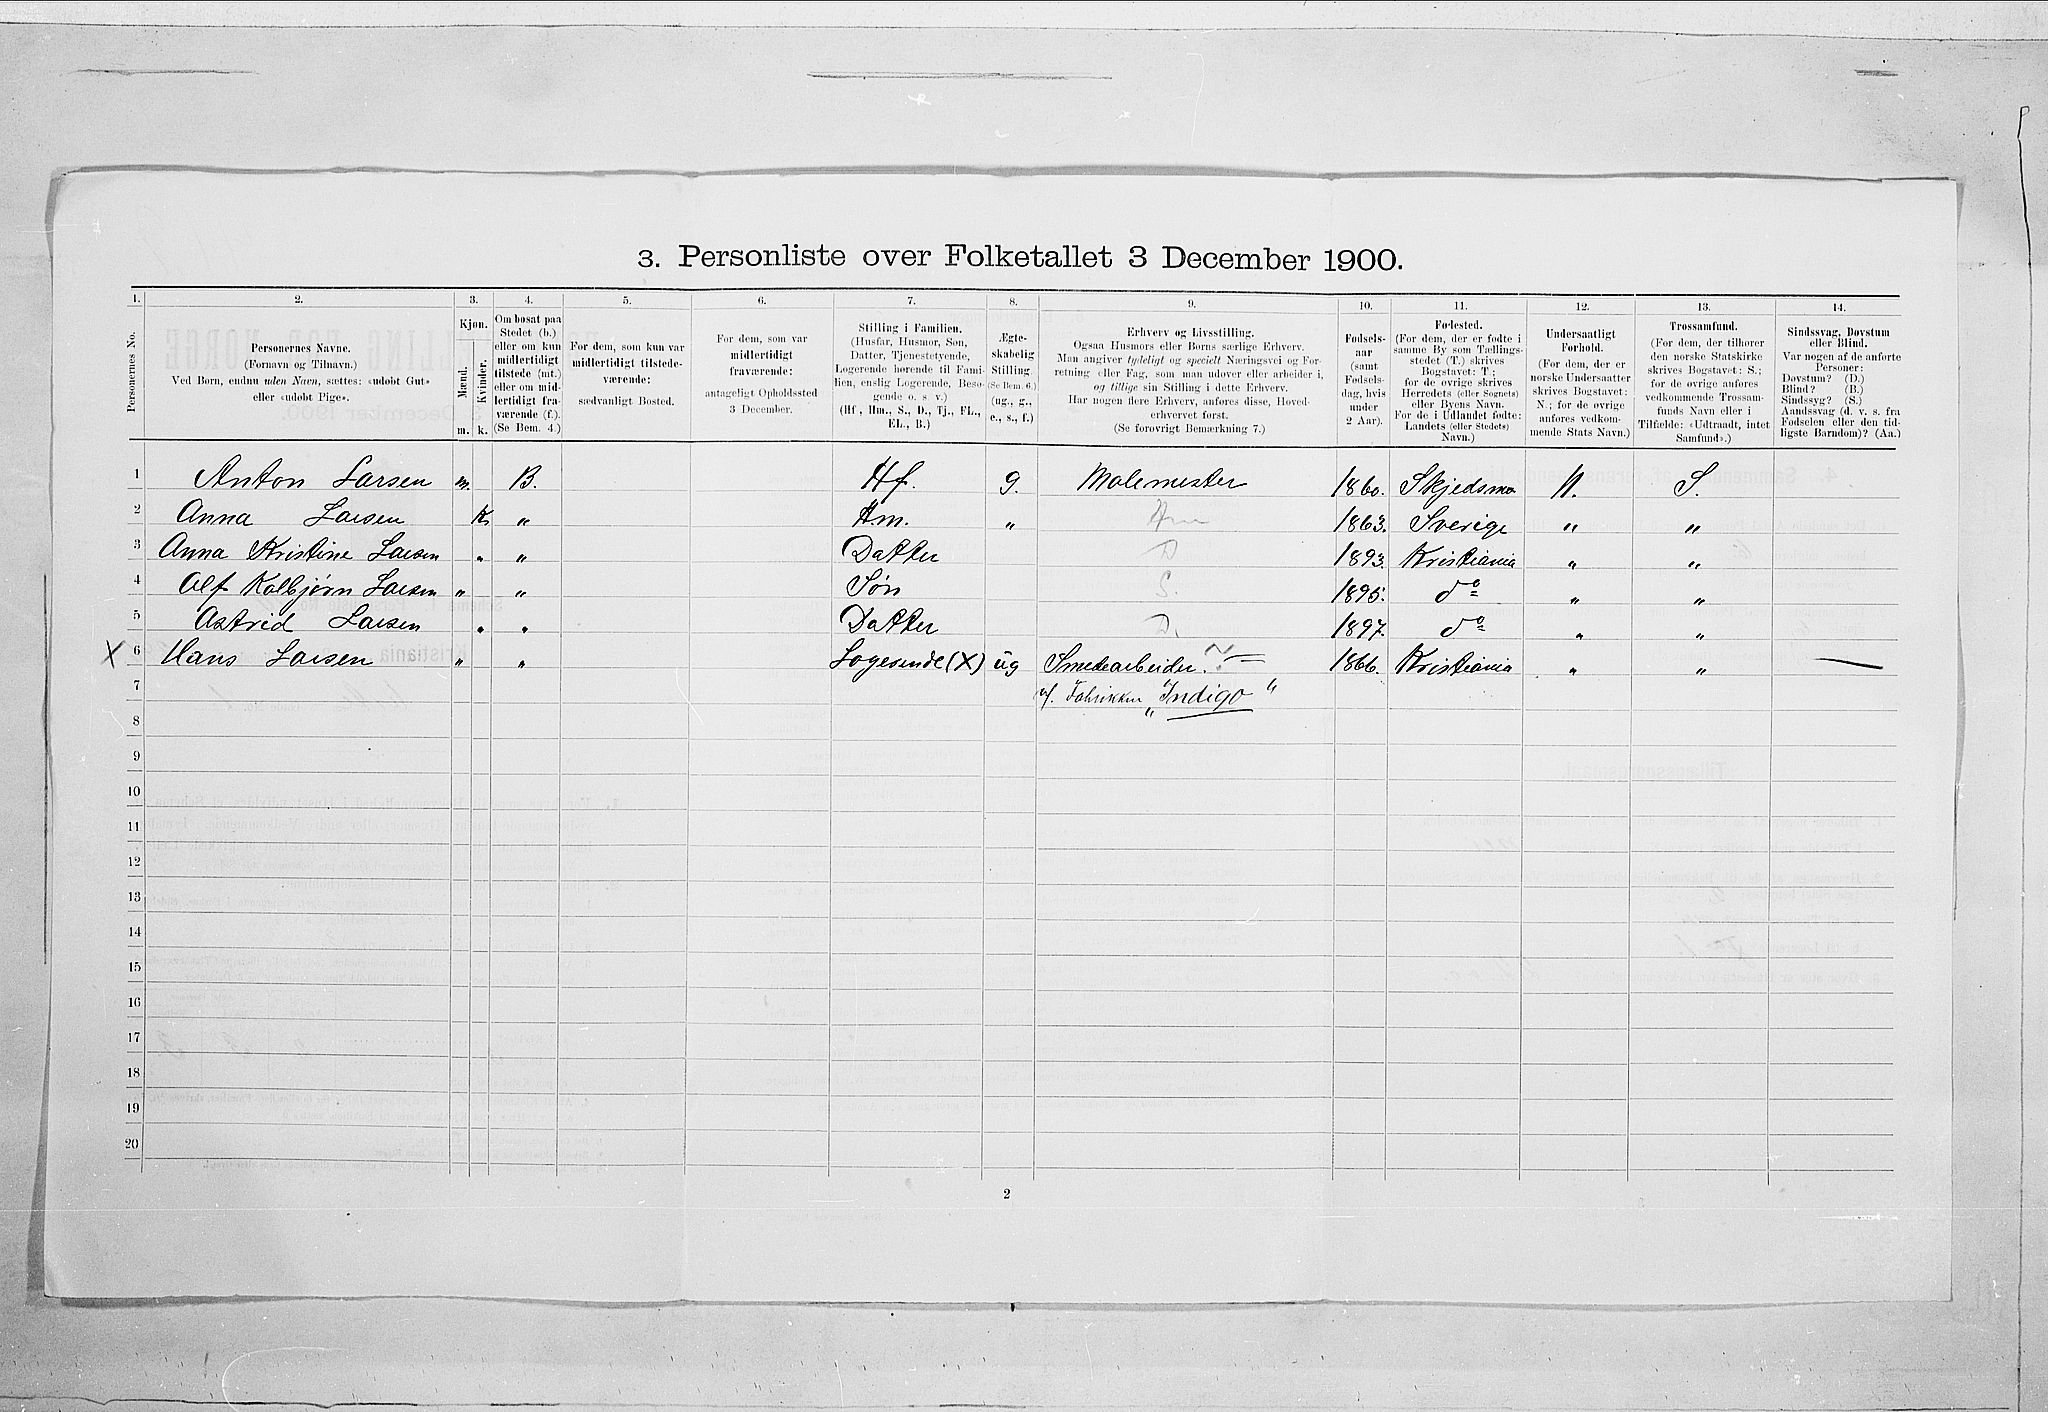 3. Personliste over Folketallet 3 December 1900.
1. 2. 3. 4. 5. 6. 7. 8. 9. 10. 11. 12. 13. 14.
Personernes No.
Personernes Navne.
(Fornavn og Tilnavn.)
Ved Børn, endnu uden Navn, sættes: «udøbt Gut»
eller «udøbt Pige».
Kjøn.
Mænd.
Kvinder.
m. k.
Om bosat paa
Stedet (b.)
eller om kun
midlertidigt
tilstede (mt.)
eller om mid-
lertidigt fra-
værende (f.)
(Se Bem. 4.)
For dem, som kun var
midlertidigt tilstede-
værende:
sædvanligt Bosted.
For dem, som var
midlertidigt
fraværende:
antageligt Opholdssted
3 December.
Stilling i Familien.
(Husfar, Husmor, Søn,
Datter, Tjenestetyende,
Logerende hørende til Fami-
lien, enslig Logerende, Besø-
gende o. s. v.)
(Hf., Hm., S., D., Tj., FL.,
EL., B.)
Ægte-
skabelig
Stilling.
(Se Bem. 6.)
(ug., g.,
e., s., f.)
Erhverv og Livsstilling.
Ogsaa Husmors eller Børns særlige Erhverv.
Man angiver tydeligt og specielt Næringsvei og For-
retning eller Fag, som man udøver eller arbeider i,
og tillige sin Stilling i dette Erhverv.
Har nogen flere Erhverv, anføres disse, Hoved-
erhvervet først.
(Se forøvrigt Bemærkning 7.)
Fødsels-
aar
(samt
Fødsels-
dag, hvis
under
2 Aar).
Fødested.
(For dem, der er fødte i
samme By som Tællings-
stedet (T.) skrives
Bogstavet: T;
for de øvrige skrives
Herredets (eller Sognets)
eller Byens Navn.
For de i Udlandet fødte:
Landets (eller Stedets)
Navn.)
Undersaatligt
Forhold.
(For dem, der er
norske Undersaatter
skrives Bogstavet:
N.; for de øvrige
anføres vedkom-
mende Stats Navn.)
Trossamfund.
(For dem, der tilhører
den norske Statskirke
skrives Bogstavet: S.;
for de øvrige anføres
vedkommende Trossam-
funds Navn eller i
Tilfælde: «Udtraadt, intet
Samfund».)
Sindssvag, Døvstum
eller Blind.
Var nogen af de anførte
Personer:
Døvstum? (D.)
Blind? (B.)
Sindssyg? (S.)
Aandssvag (d. v. s. fra
Fødselen eller den tid-
ligste Barndom)? (Aa.)
1 Anton Larsen m. B. Hf. g. Malemester 1860. Skjedsmo N. S.
2 Anna Larsen K. " Hm. " Hm 1863. Sverige " "
3 Anna Kristine Larsen " " Datter D 1893. Kristiania " "
4 Alf Kolbjørn Larsen " " Søn S. 1895. do " "
5 Astrid Larsen " " Datter D. 1897. do " "
X 6 Hans Larsen " " Logerende (X) ug Smedearbeider. 1866. Kristiania " " —
7 v/. Fabrikken „Indigo"
8
9
10
11
12
13
14
15
16
17
18
19
20
2